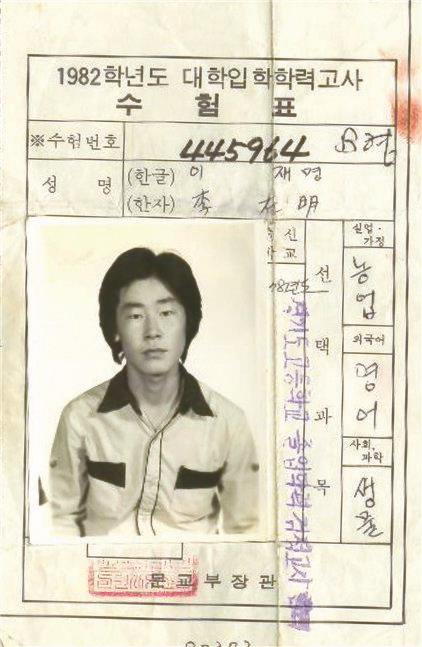 1982학년도 대학입학학력고사
수 험 표
※수험번호 445964
성 명 (한글) 이 재명
(한자) 李 在 明
선택과목
실업·가정 농업
외국어 영어
사회,과학 생물
신
교
82년도
경기도 고등학교 졸업학력 검정고시
문교부장관